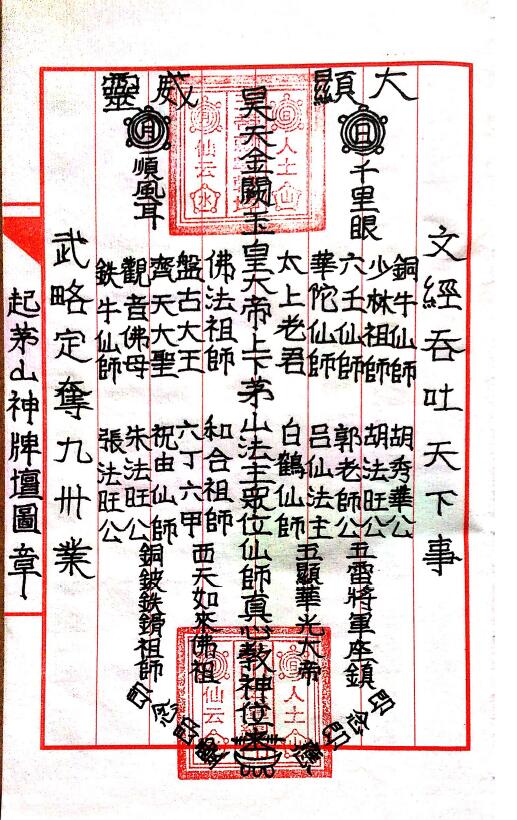 大顯威靈
文經吞吐天下事
日
千里眼
銅牛仙師
少林祖師
六壬仙師
華陀仙師
太上老君
胡秀華公
胡法旺公
郭老師公
呂仙法主
白鶴仙師
五雷將軍座鎮
五顯華光大帝
昊天金闕玉皇大帝上下茅山法主眾位仙師真心教神位
佛法祖師
盤古大王
齊天大聖
觀音佛母
鉄牛仙師
和合祖師
六丁六甲
祝由仙師
朱法旺公
張法旺公
西天如來佛祖
銅鈸鉄鎖祖師
月
順風耳
武略定奪九卅業
起茅山神牌壇圖章
日人土山
月仙云水
日人土山
月仙云